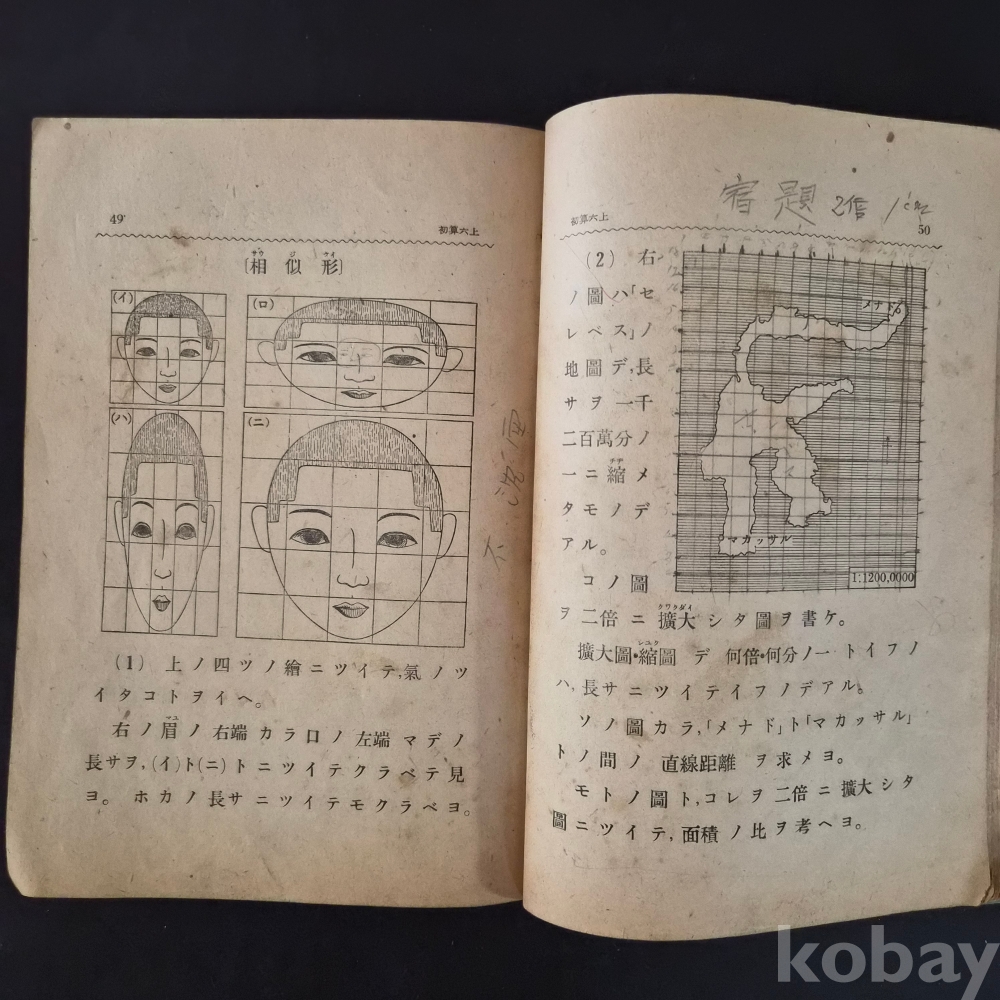 49
初算六上
〔相似形〕
サウ ジ ケイ
(イ)
(ロ)
(ハ)
(ニ)
(1) 上ノ四ツノ繪ニツイテ,氣ノツ
イタコトヲイヘ。
マユ
右ノ眉ノ右端カラ口ノ左端マデノ
長サヲ,(イ)ト(ニ)トニツイテクラベテ見
ヨ。 ホカノ長サニツイテモクラベヨ。
初算六上
宿題 2倍 1cm
50
(2) 右
ノ圖ハ「セ
レベス」ノ
地圖デ,長
サヲ一千
二百萬分ノ
チヂ
一ニ縮メ
タモノデ
アル。
メナド
マカッサル
1:1200,0000
コノ圖
クワクダイ
ヲ二倍ニ擴大シタ圖ヲ書ケ。
シユク
擴大圖・縮圖デ何倍・何分ノ一トイフノ
ハ,長サニツイテイフノデアル。
ソノ圖カラ,「メナド」ト「マカッサル」
トノ間ノ直線距離ヲ求メヨ。
モトノ圖ト,コレヲ二倍ニ擴大シタ
圖ニツイテ,面積ノ比ヲ考ヘヨ。
kobay